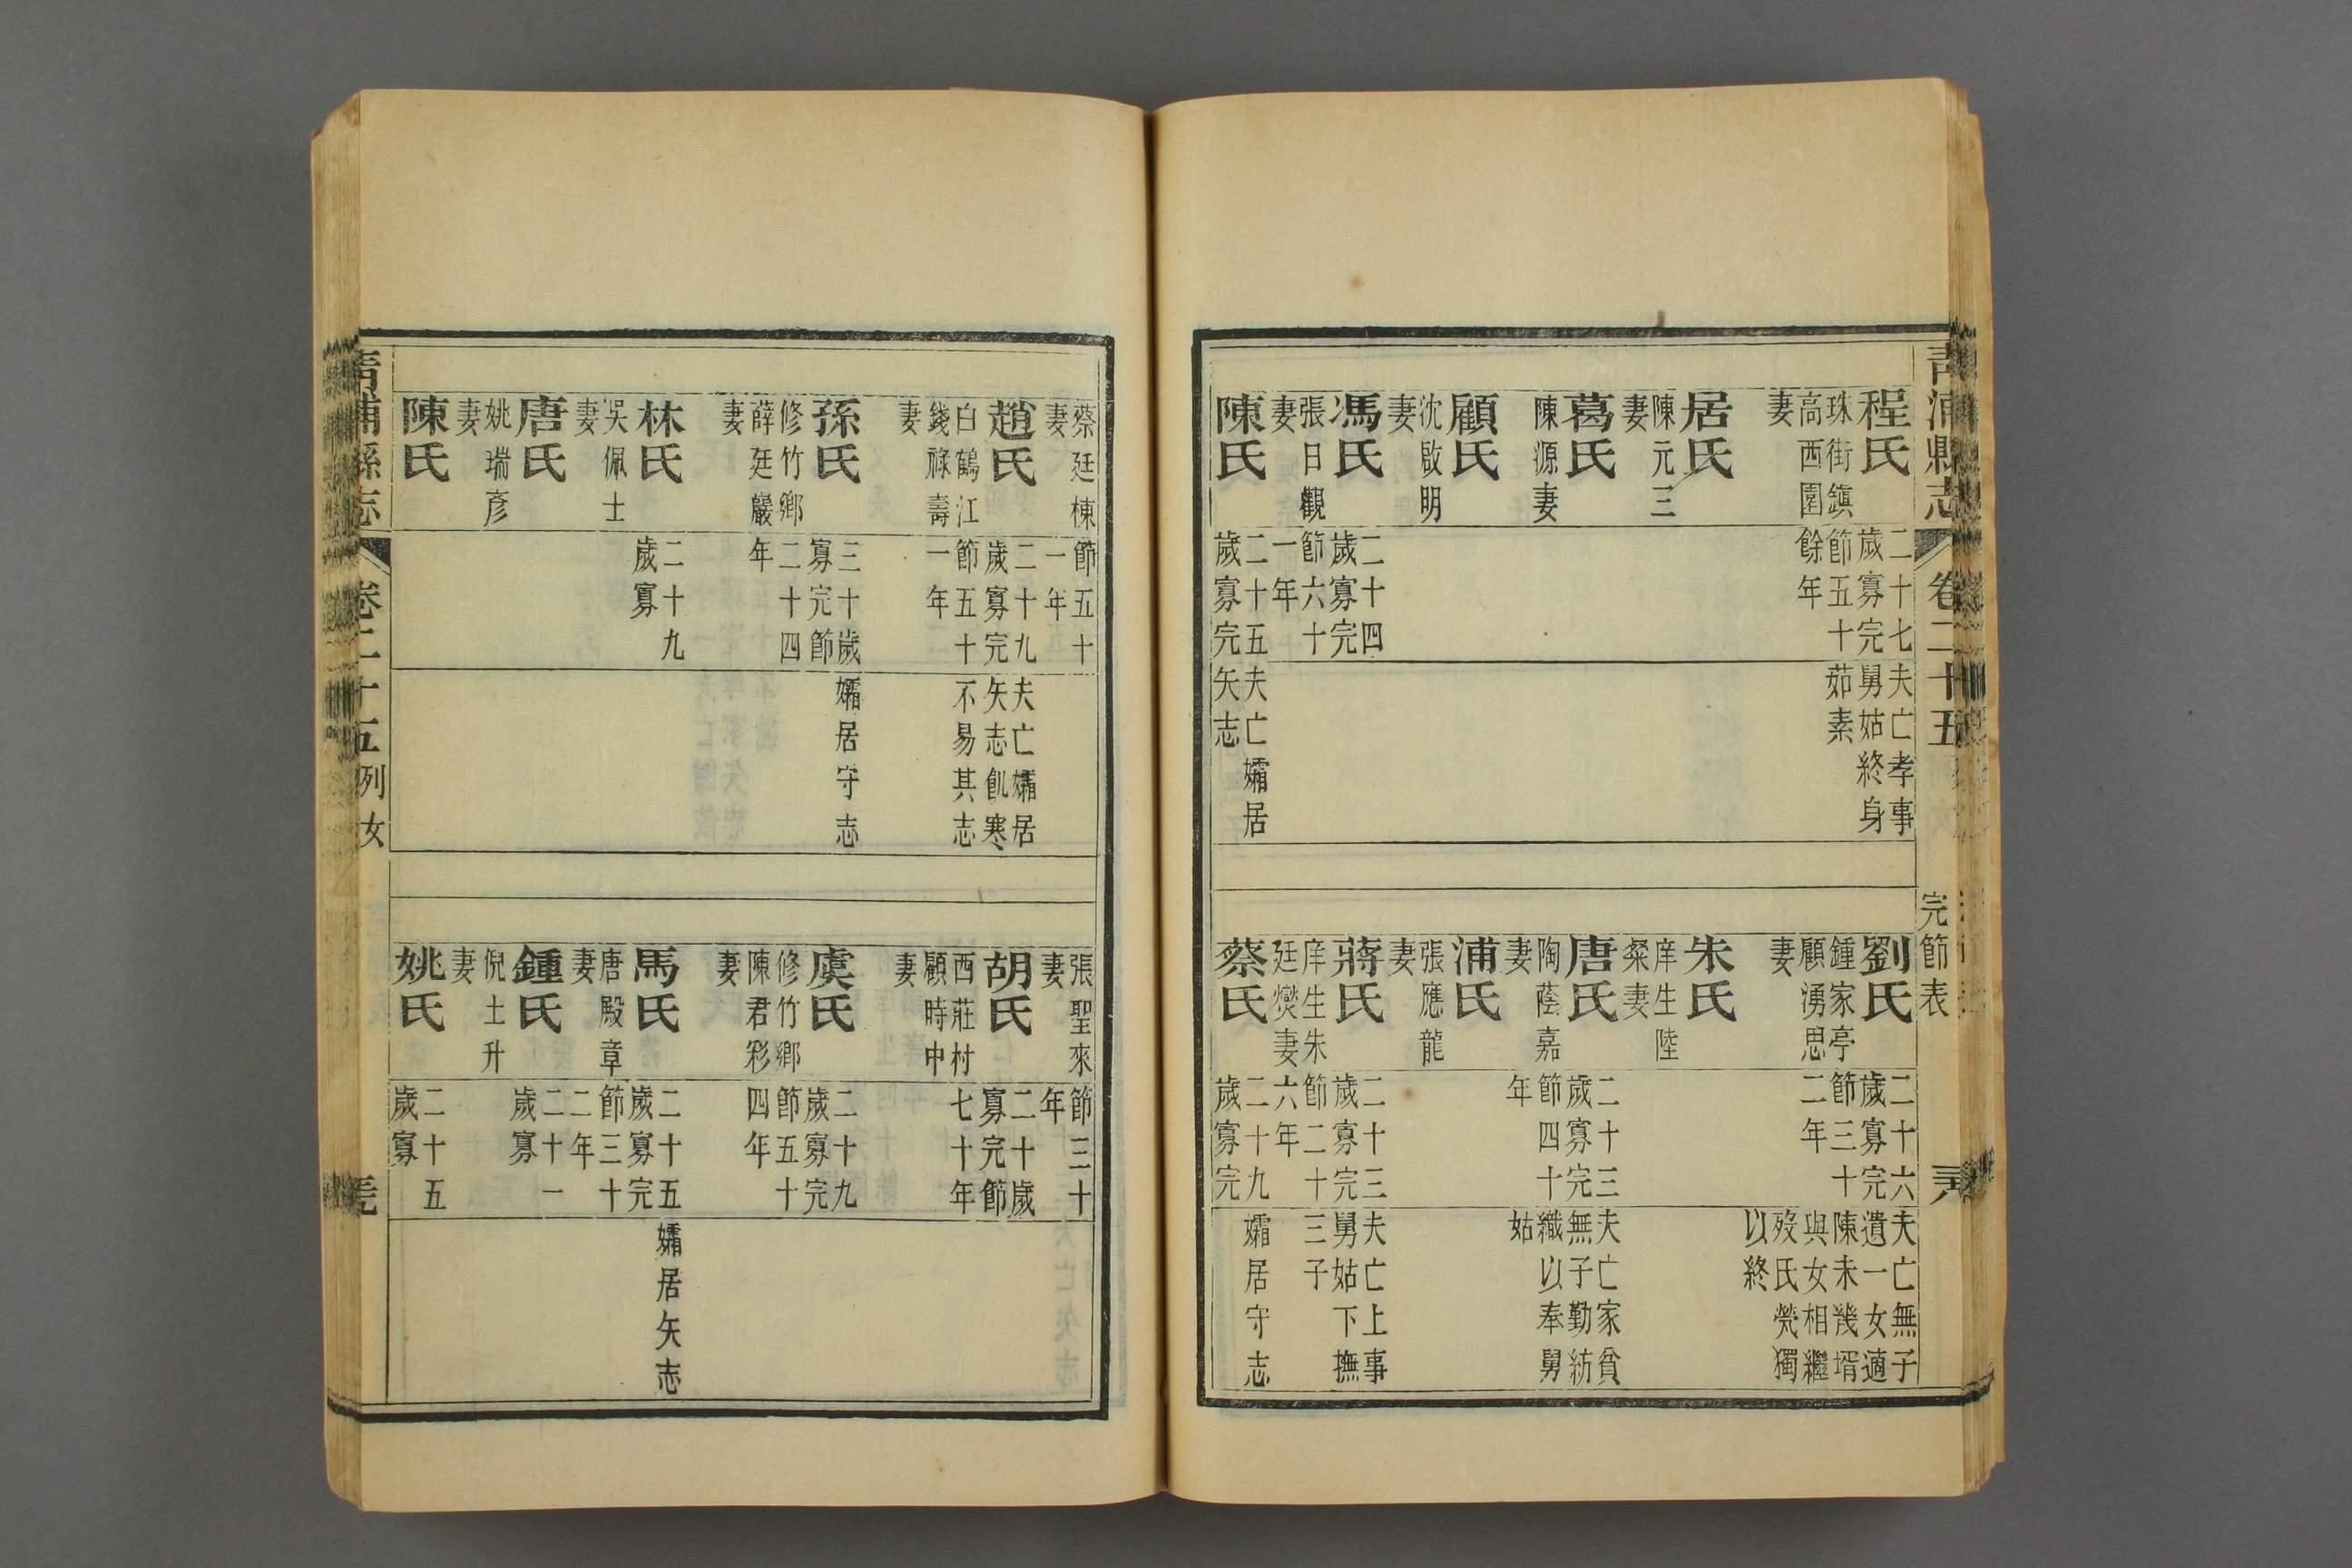 青浦縣志
卷二十五
完節表
程氏
珠街鎮
高西園
妻
二十七
歲寡完
節五十
餘年
夫亡孝事
舅姑終身
茹素
居氏
陳元三
妻
葛氏
陳源妻
顧氏
沈啟明
妻
馮氏
張日觀
妻
二十四
歲寡完
節六十
一年
陳氏
二十五
歲寡完
夫亡孀居
矢志
劉氏
鍾家亭
顧湧思
妻
二十六
歲寡完
節三十
二年
夫亡無子
遺一女適
陳未幾壻
與女相繼
歿氏煢獨
以終
朱氏
庠生陸
粲妻
唐氏
陶蔭嘉
妻
二十三
歲寡完
節四十
年
夫亡家貧
無子勤紡
織以奉舅
姑
浦氏
張應龍
妻
蔣氏
庠生朱
廷爕妻
二十三
歲寡完
節二十
六年
夫亡上事
舅姑下撫
三子
蔡氏
二十九
歲寡完
孀居守志
蔡廷棟
妻
節五十
一年
趙氏
白鶴江
錢祿壽
妻
二十九
歲寡完
節五十
一年
夫亡孀居
矢志飢寒
不易其志
孫氏
修竹鄉
薛廷巖
妻
三十歲
寡完節
二十四
年
孀居守志
林氏
吳佩士
妻
二十九
歲寡
唐氏
姚瑞彥
妻
陳氏
張聖來
妻
節三十
年
胡氏
西莊村
顧時中
妻
二十歲
寡完節
七十年
虞氏
修竹鄉
陳君彩
妻
二十九
歲寡完
節五十
四年
馬氏
唐殿章
妻
二十五
歲寡完
節三十
二年
孀居矢志
鍾氏
倪士升
妻
二十一
歲寡
姚氏
二十五
歲寡
青浦縣志
卷二十五
列女